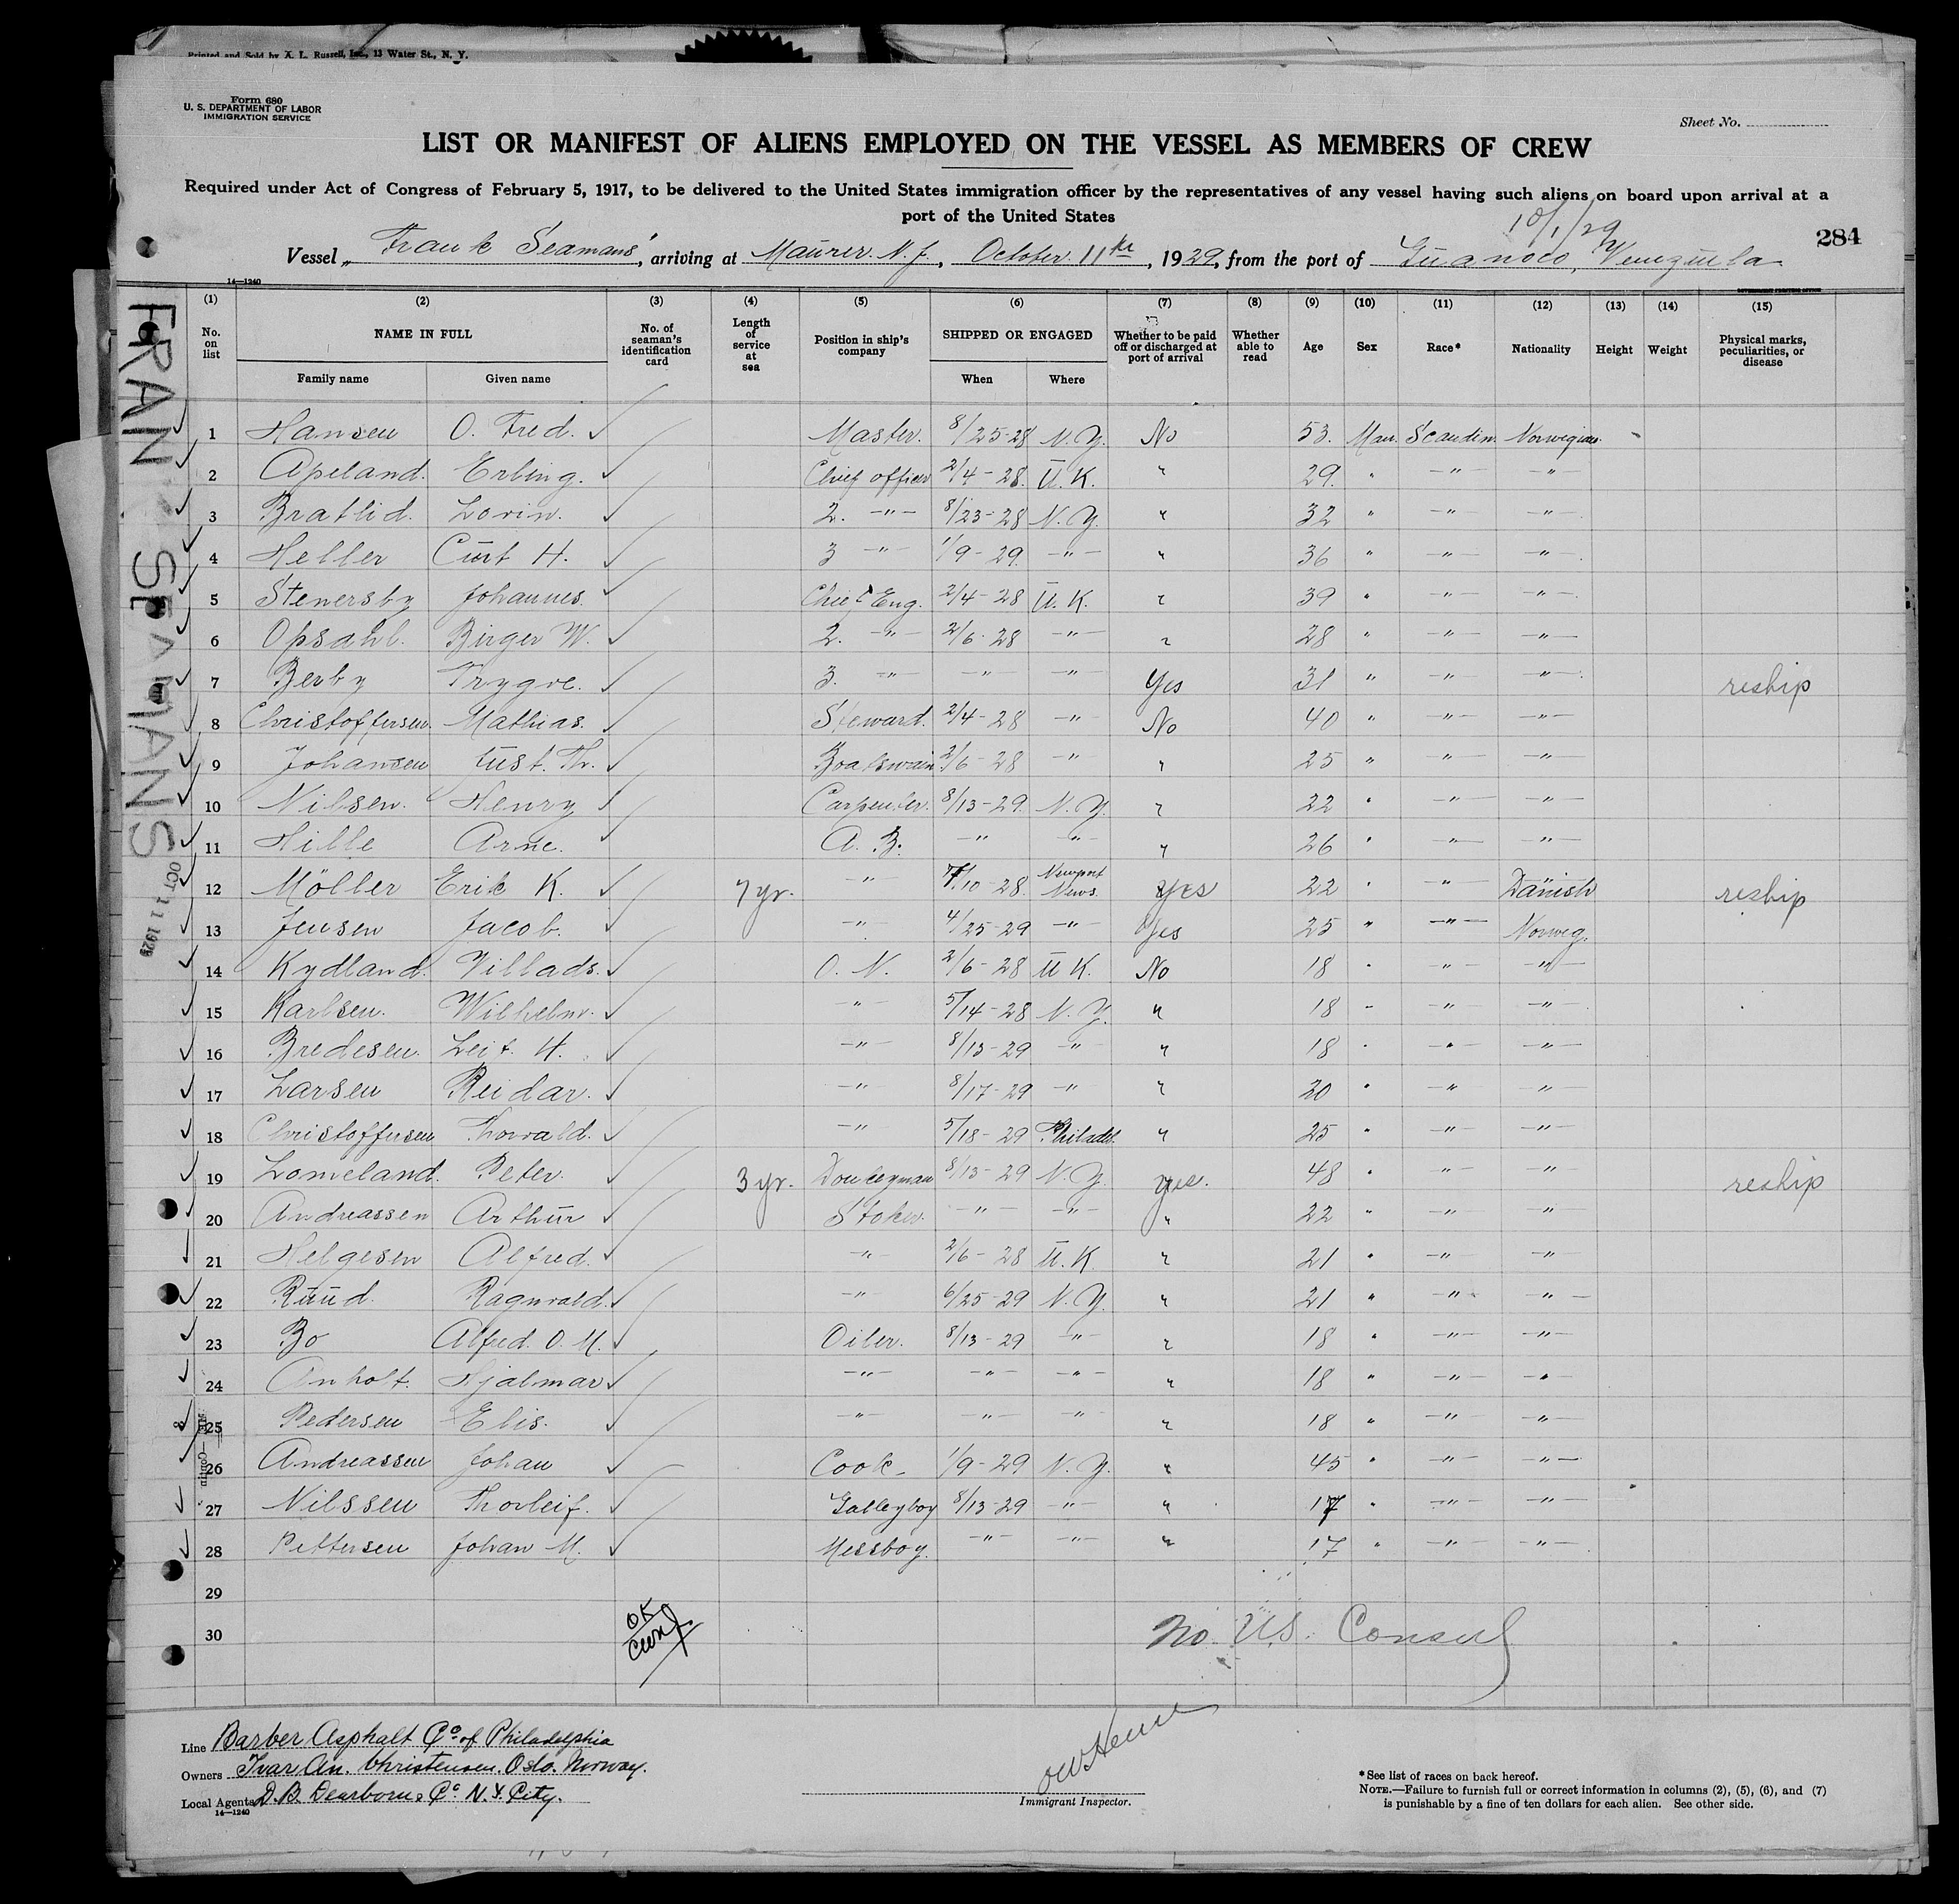 Printed and Sold by A. L. Russell, Inc., 13 Water St., N. Y.
Form 680
U. S. DEPARTMENT OF LABOR
IMMIGRATION SERVICE
Sheet No.
LIST OR MANIFEST OF ALIENS EMPLOYED ON THE VESSEL AS MEMBERS OF CREW
Required under Act of Congress of February 5, 1917, to be delivered to the United States immigration officer by the representatives of any vessel having such aliens on board upon arrival at a
port of the United States
10/1/29
284
Vessel „Frank Seamans", arriving at Maurer. N. J., October 11th, 1929, from the port of Guanoco, Venezuela
14—1240
FRANK SEAMANS
OCT 11 1929
(1) (2) (3) (4) (5) (6) (7) (8) (9) (10) (11) (12) (13) (14) (15)
No. on list NAME IN FULL No. of seaman's identification card Length of service at sea Position in ship's company SHIPPED OR ENGAGED Whether to be paid off or discharged at port of arrival Whether able to read Age Sex Race* Nationality Height Weight Physical marks, peculiarities, or disease
Family name Given name When Where
1 Hansen O. Fred. Master. 8/25-28 N. Y. No 53. Man. Scandin. Norwegian.
2 Apeland. Erling. Chief officer 2/4-28. U. K. " 29. " -"- -"-
3 Bratlid. Lorin. 2. -"- 8/23-28 N. Y. " 32 " -"- -"-
4 Heller Curt H. 3 -"- 1/9-29. -"- " 36 " -"- -"-
5 Stenersby Johannes. Chief Eng. 2/4-28 U. K. " 39 " -"- -"-
6 Opsahl. Birger W. 2. -"- 2/6-28 -"- " 28 " -"- -"-
7 Berby Trygve. 3. -"- -"- -"- Yes 31 " -"- -"- reship
8 Christoffersen. Mathias. Steward. 2/4-28 -"- No 40 " -"- -"-
9 Johansen Gust. Th. Boatswain 2/6-28 -"- " 25 " -"- -"-
10 Nilsen. Henry Carpenter. 8/13-29. N. Y. " 22 " -"- -"-
11 Hille Arne. A. B. -"- -"- " 26 " -"- -"-
12 Möller Erik K. 7 yr. -"- 7/10-28. Newport News. Yes 22 " -"- Danish reship
13 Jensen Jacob. -"- 4/25-29 -"- Yes 25 " -"- Norweg.
14 Kydland. Villads. O. N. 2/6-28 U K. No 18 " -"- -"-
15 Karlsen. Wilhelm. -"- 5/14-28 N. Y. " 18 " -"- -"-
16 Bredesen. Leif. H. -"- 8/13-29 -"- " 18 " -"- -"-
17 Larsen Reidar. -"- 8/17-29 -"- " 20 " -"- -"-
18 Christoffersen Thorvald. -"- 5/18-29 Philadel. " 25 " -"- -"-
19 Lomeland. Peter. 3 yr. Donkeyman 8/13-29 N. Y. yes. 48 " -"- -"- reship
20 Andreassen Arthur Stoker. -"- -"- " 22 " -"- -"-
21 Helgesen Alfred. -"- 2/6-28 U. K. " 21 " -"- -"-
22 Ruud. Ragnvald. -"- 6/25-29 N. Y. " 21 " -"- -"-
23 Bo Alfred. O. M. Oiler. 8/13-29 -"- " 18 " -"- -"-
24 Anholt. Hjalmar -"- -"- -"- " 18 " -"- -"-
25 Pedersen Elis. -"- -"- -"- " 18 " -"- -"-
26 Andreassen Johan Cook 1/9-29 N. Y. " 45 " -"- -"-
27 Nilssen Thorleif. Galleyboy 8/13-29 -"- " 17 " -"- -"-
28 Pettersen Johan M. Messboy. -"- -"- " 17 " -"- -"-
29
30
OK
No U.S. Consul
Line Barber Asphalt Co. of Philadelphia
Owners Ivar An. Christensen. Oslo. Norway.
Local Agents D. B. Dearborn. Co. N. Y. City.
14—1240
Immigrant Inspector.
*See list of races on back hereof.
NOTE.—Failure to furnish full or correct information in columns (2), (5), (6), and (7)
is punishable by a fine of ten dollars for each alien. See other side.